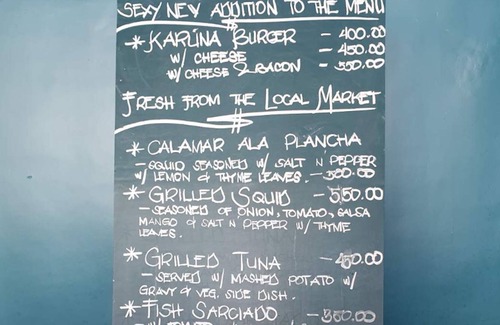 SEXY NEW ADDITION TO THE MENU
* KARLINA BURGER - 400.00
W/ CHEESE - 450.00
W/ CHEESE & BACON - 550.00
FRESH FROM THE LOCAL MARKET
* CALAMAR ALA PLANCHA
- SQUID SEASONED W/ SALT N PEPPER
W/ LEMON & THYME LEAVES. - 500.00
* GRILLED SQUID - 550.00
- SEASONED OF ONION, TOMATO, SALSA
MANGO & SALT N PEPPER W/ THYME
LEAVES.
* GRILLED TUNA - 450.00
- SERVED W/ MASHED POTATO W/
GRAVY & VEG. SIDE DISH.
* FISH SARCIADO - 350.00